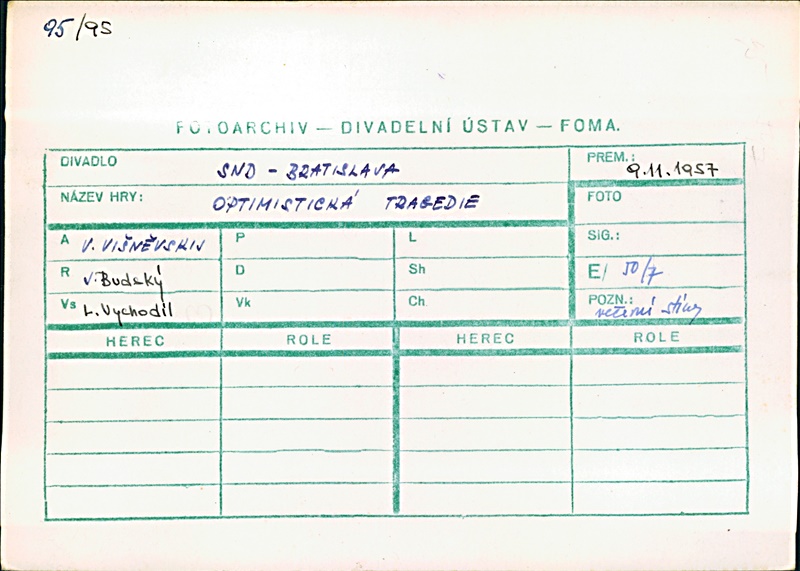 95/95
FOTOARCHIV — DIVADELNÍ ÚSTAV — FOMA.
DIVADLO SND - BRATISLAVA PREM.: 9.11.1957
NÁZEV HRY: OPTIMISTICKÁ TRAGEDIE FOTO
A V. VIŠNĚVSKIJ P L SIG.:
R J. Budský D Sh E/ 50/7
Vs L. Vychodil Vk Ch POZN.:
HEREC ROLE HEREC ROLE